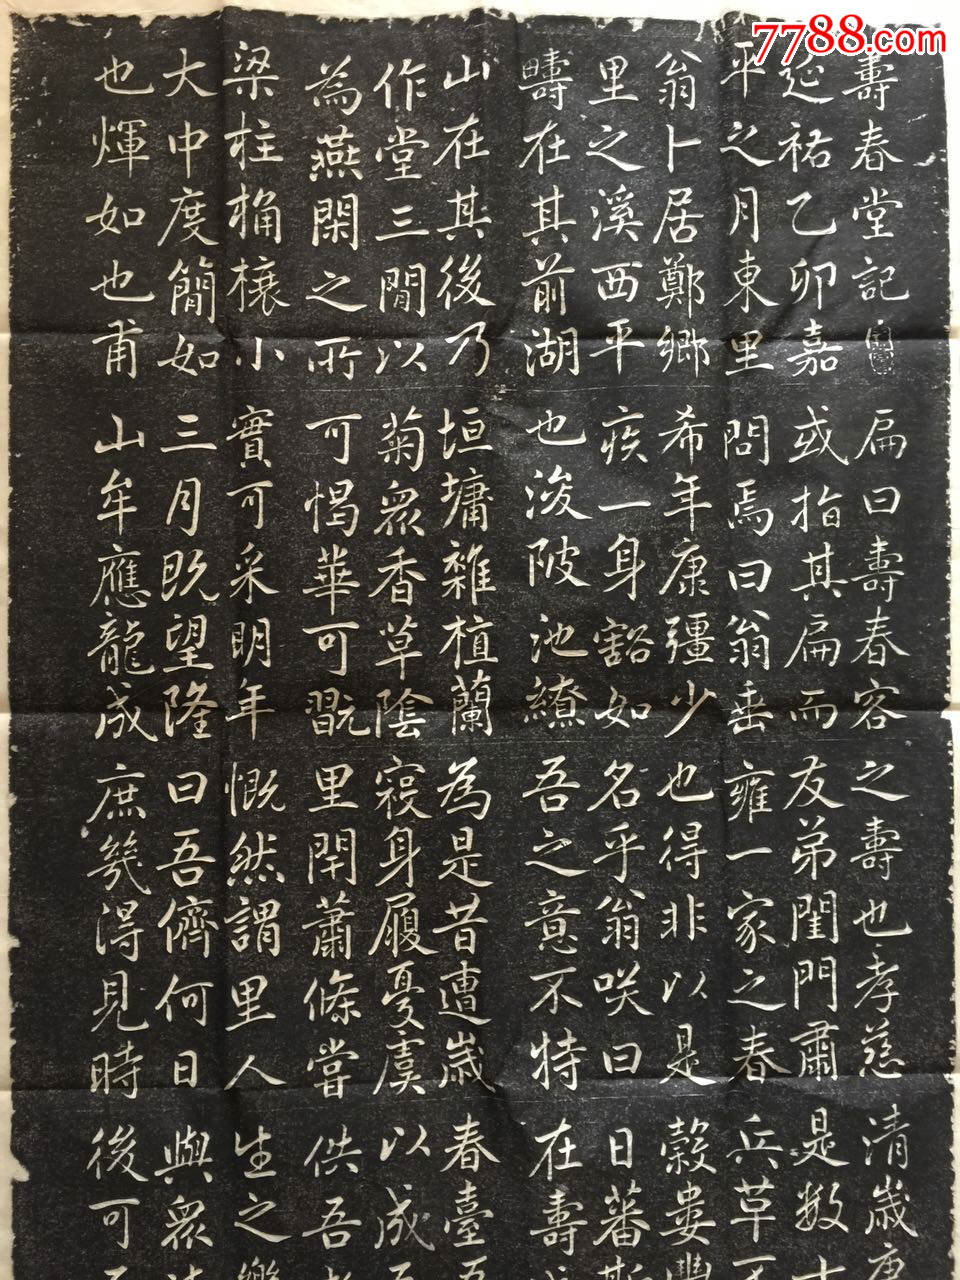 7788.com
壽春堂記
延祐乙卯嘉
平之月東里
翁卜居鄭鄉
里之溪西平
疇在其前湖
山在其後乃
作堂三間以
為燕閑之所
梁柱桷榱小
大中度簡如
也煇如也甫
扁曰壽春容
或指其扁而
問焉曰翁垂
希年康彊少
疾一身豁如
也浚陂池繚
垣墉雜植蘭
菊衆香草陰
可愒華可翫
實可采明年
三月既望隆
山牟應龍成
之壽也孝慈
友弟閨門肅
雍一家之春
也得非以是
名乎翁咲曰
吾之意不特
為是昔遭歲
寇身履憂虞
里閈蕭條嘗
慨然謂里人
曰吾儕何日
庶幾得見時
清歲
是數
兵革
穀婁豐
日蕃斯
在壽
春臺
以成
供吾
生之樂
與衆
後可